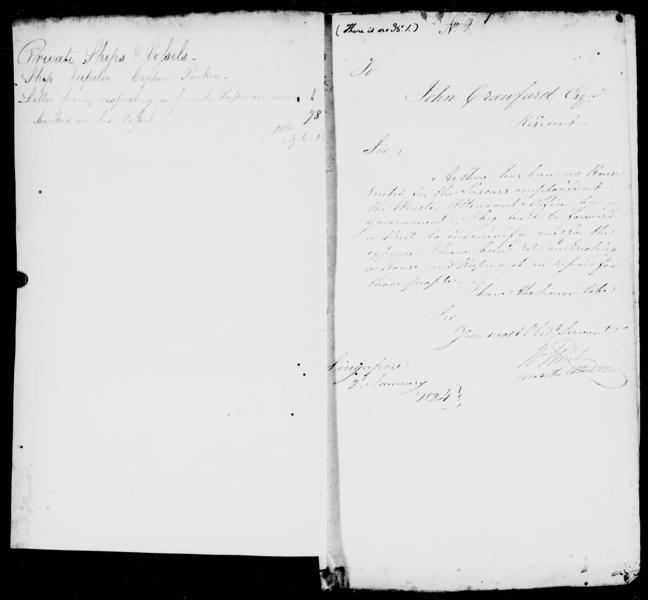 Private Ships & Vessels.
Ship Jupiter. Captain
Letter from, respecting a private Passenger em- 1
barked on his Vessel 78
(There is no No. 1.) No 2
To
John Crawfurd Esqr.
Resident
Sir,
As there has been no House
erected for the Lascars employed at
the Master Attendant's Office by
Government, I beg leave to forward
a Bill to indemnify me for the
expence I have been at in Erecting
a House and Keeping it in repair for
those people.
I have the honor to be
Sir
Your most Obedt. Servant
Wm
Master Attendant
Singapore
2d January
1824